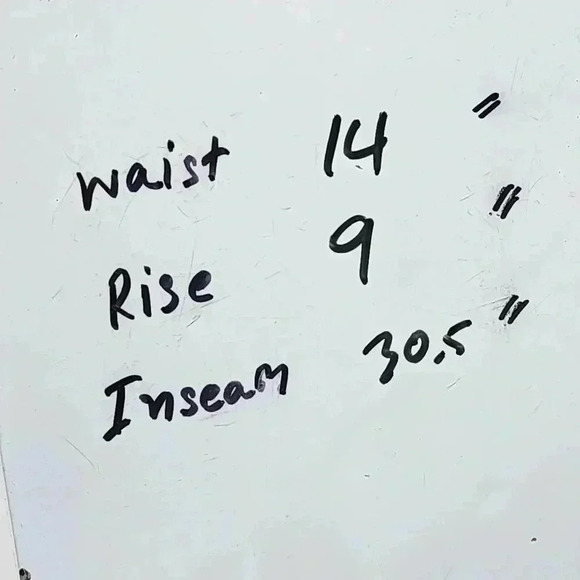 waist 14 "
Rise 9 "
Inseam 30.5 "